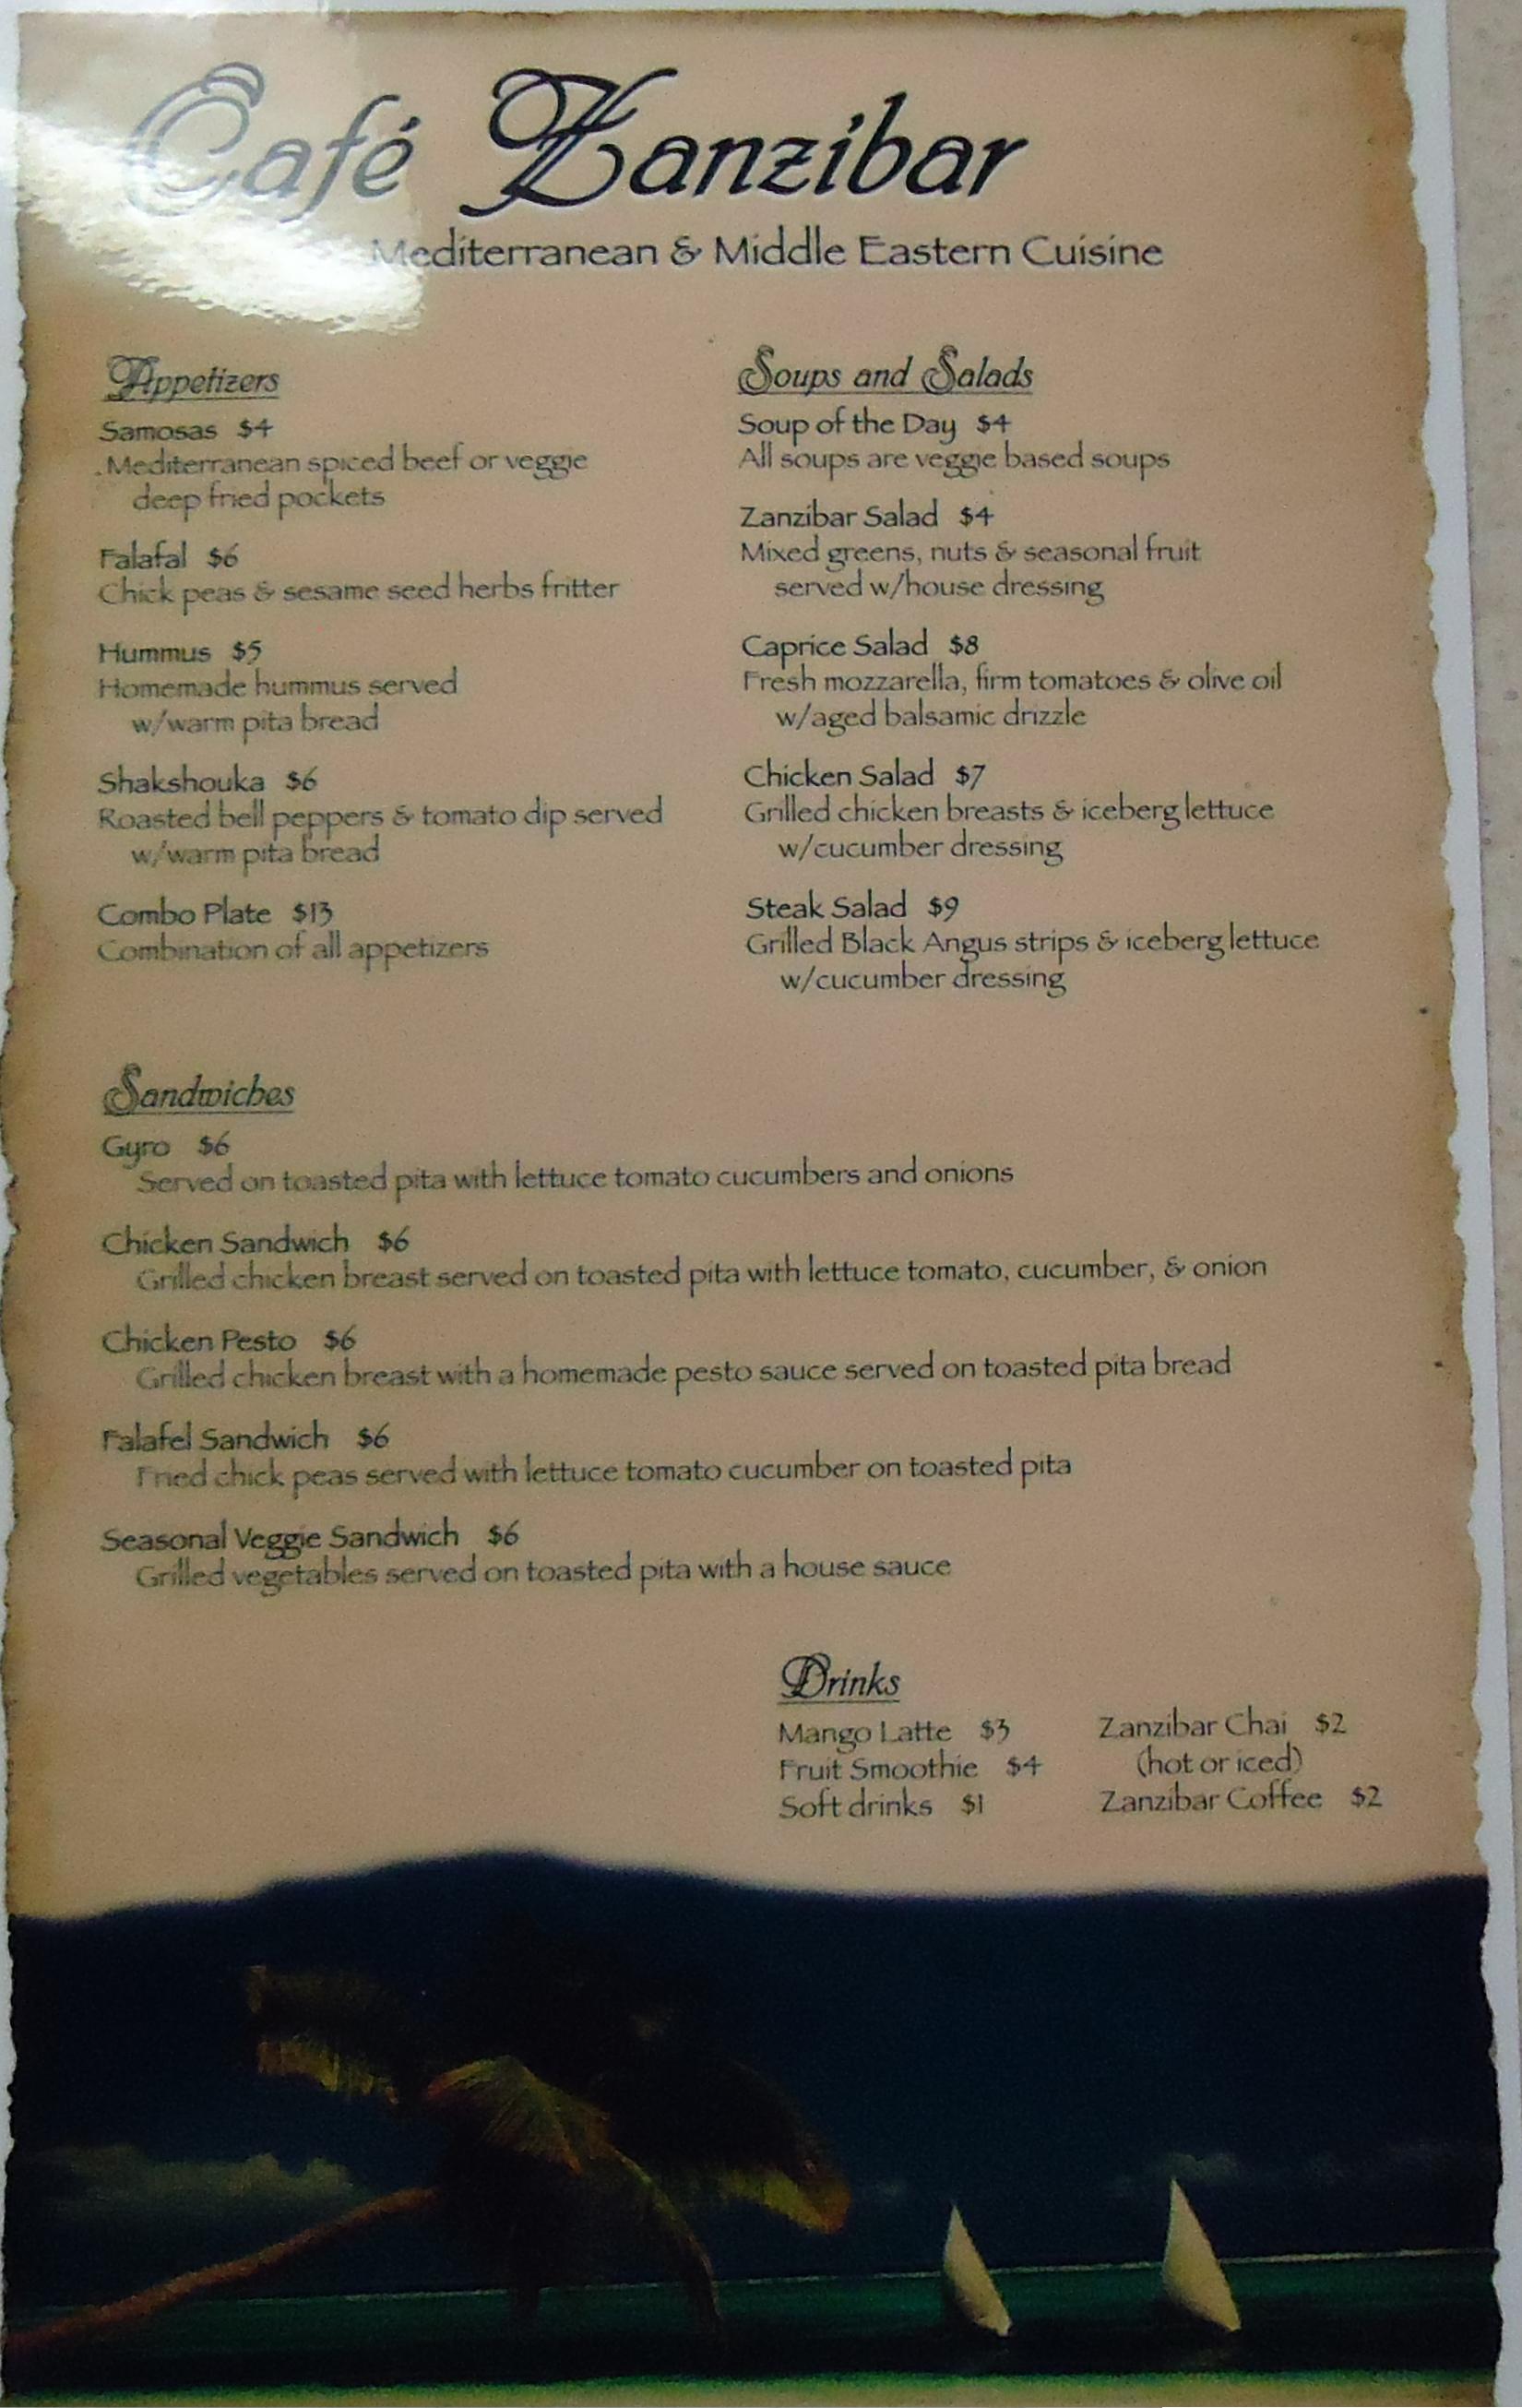 Café Zanzibar
Mediterranean & Middle Eastern Cuisine
Appetizers
Samosas $4
Mediterranean spiced beef or veggie
deep fried pockets
Falafal $6
Chick peas & sesame seed herbs fritter
Hummus $5
Homemade hummus served
w/warm pita bread
Shakshouka $6
Roasted bell peppers & tomato dip served
w/warm pita bread
Combo Plate $13
Combination of all appetizers
Soups and Salads
Soup of the Day $4
All soups are veggie based soups
Zanzibar Salad $4
Mixed greens, nuts & seasonal fruit
served w/house dressing
Caprice Salad $8
Fresh mozzarella, firm tomatoes & olive oil
w/aged balsamic drizzle
Chicken Salad $7
Grilled chicken breasts & iceberg lettuce
w/cucumber dressing
Steak Salad $9
Grilled Black Angus strips & iceberg lettuce
w/cucumber dressing
Sandwiches
Gyro $6
Served on toasted pita with lettuce tomato cucumbers and onions
Chicken Sandwich $6
Grilled chicken breast served on toasted pita with lettuce tomato, cucumber, & onion
Chicken Pesto $6
Grilled chicken breast with a homemade pesto sauce served on toasted pita bread
Falafel Sandwich $6
Fried chick peas served with lettuce tomato cucumber on toasted pita
Seasonal Veggie Sandwich $6
Grilled vegetables served on toasted pita with a house sauce
Drinks
Mango Latte $3
Fruit Smoothie $4
Soft drinks $1
Zanzibar Chai $2
(hot or iced)
Zanzibar Coffee $2